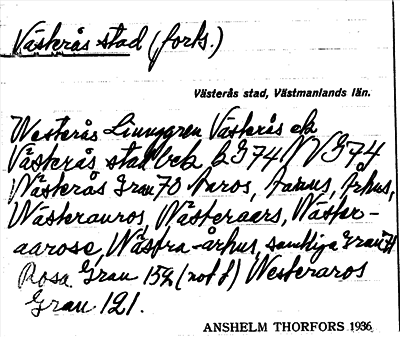 Västerås stad (forts.)
Västerås stad, Västmanlands län.
Westerås Linnggren Västerås ek
Västerås stad bek b G74 NV G74
Wästerås Grau 70 Aaros, Aarus, Århus,
Wästerauros, Wästeraers, Wäster-
aarose, Wästra-århus, samtliga Grau 71
Rosa Grau 152 (not 8) Westeraros
Grau 121.
ANSHELM THORFORS 1936